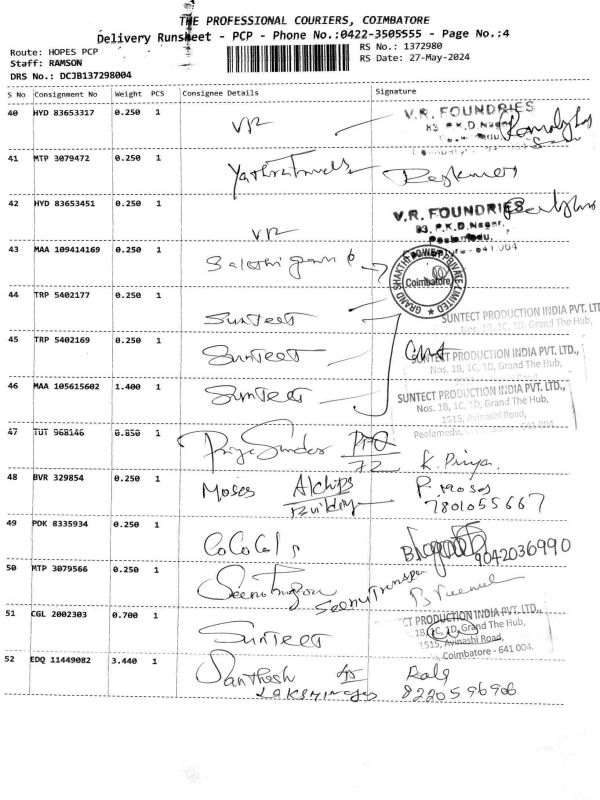 THE PROFESSIONAL COURIERS, COIMBATORE
Delivery Runsheet - PCP - Phone No.:0422-3505555 - Page No.:4
Route: HOPES PCP
RS No.: 1372980
Staff: RAMSON
RS Date: 27-May-2024
DRS No.: DCJB137298004
S No Consignment No Weight PCS Consignee Details Signature
40 HYD 83653317 0.250 1 VR V.R. FOUNDRIES
83 P.K.D.Nagar
41 MTP 3079472 0.250 1 Yathra Travels
42 HYD 83653451 0.250 1 VR V.R. FOUNDRIES
83, P.K.D.Nagar,
Peelamedu,
641 004
43 MAA 109414169 0.250 1 GRAND SHAKTHI POWER PRIVATE LIMITED
Coimbatore
44 TRP 5402177 0.250 1 Suntect SUNTECT PRODUCTION INDIA PVT. LTD
Nos. 1B, 1C, 1D, Grand The Hub,
45 TRP 5402169 0.250 1 Suntect SUNTECT PRODUCTION INDIA PVT. LTD.,
Nos. 1B, 1C, 1D, Grand The Hub,
46 MAA 105615602 1.400 1 Suntect SUNTECT PRODUCTION INDIA PVT. LTD.,
Nos. 1B, 1C, 1D, Grand The Hub,
1515, Avinashi Road,
Peelamedu,
47 TUT 968146 0.850 1 Priya 72 K. Priya
48 BVR 329854 0.250 1 Moses Building P. Moses
7801055667
49 PDK 8335934 0.250 1 9042036990
50 MTP 3079566 0.250 1
51 CGL 2002303 0.700 1 Suntect CT PRODUCTION INDIA PVT. LTD.,
1B, 1C, 1D, Grand The Hub,
1515, Avinashi Road,
Coimbatore - 641 004.
52 EDQ 11449082 3.440 1 Santhosh
8220596906